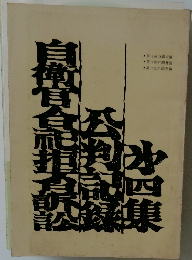 自衛官合祀拒否訴訟
公判記録
第四集